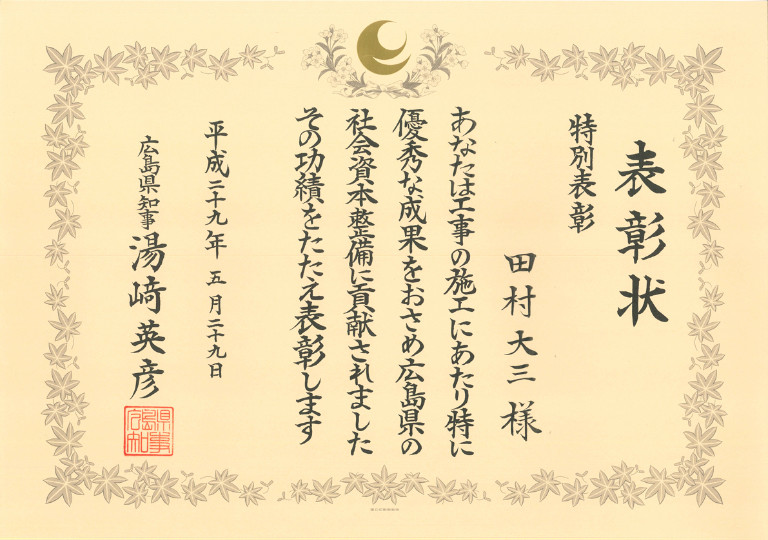 表彰状
特別表彰
田村大三様
あなたは工事の施工にあたり特に
優秀な成果をおさめ広島県の
社会資本整備に貢献されました
その功績をたたえ表彰します
平成二十九年五月二十九日
広島県知事 湯﨑英彦
広島県知事